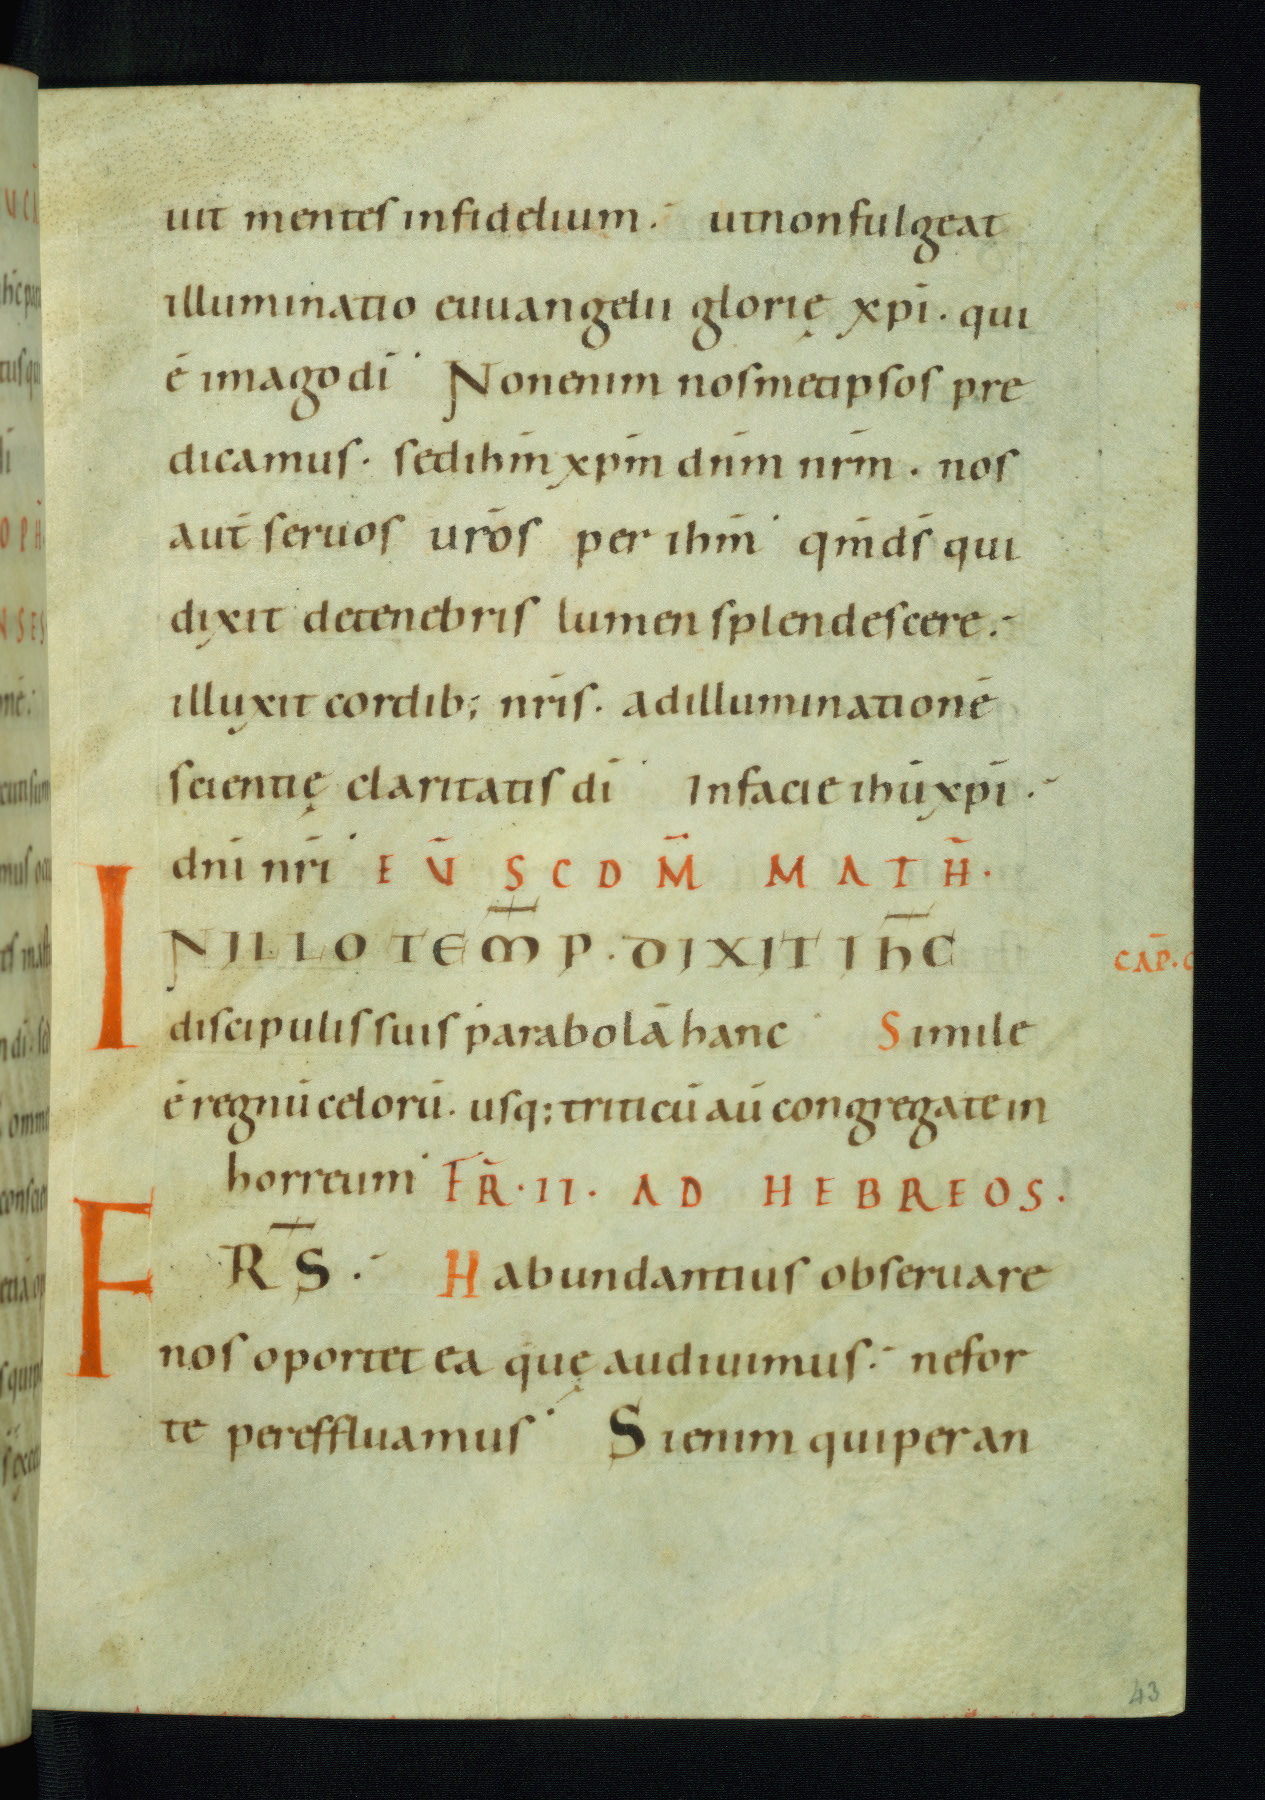 uit mentes infidelium. ut non fulgeat
illuminatio euuangelii glorię xpī. qui
ē imago dī Non enim nosmetipsos pre
dicamus. sed ihm̄ xpm̄ dnm̄ nrm̄. nos
aut̄ seruos urōs per ihm̄ qm̄ ds̄ qui
dixit de tenebris lumen splendescere.
illuxit cordib; nrīs. ad illuminationē
scientię claritatis dī In facie ihū xpī.
dnī nrī EŪ SCDM̄ MATH̄.
IN ILLO TEM̄P. DIXIT IHC̄
discipulis suis parabolā hanc Simile
ē regnū celorū. usq; triticū aū congregate in
horreum FR̄. II. AD HEBREOS.
FRS̄. Habundantius obseruare
nos oportet ea quę audiuimus. ne for
te pereffluamus Si enim qui per an
CAP̄.
43